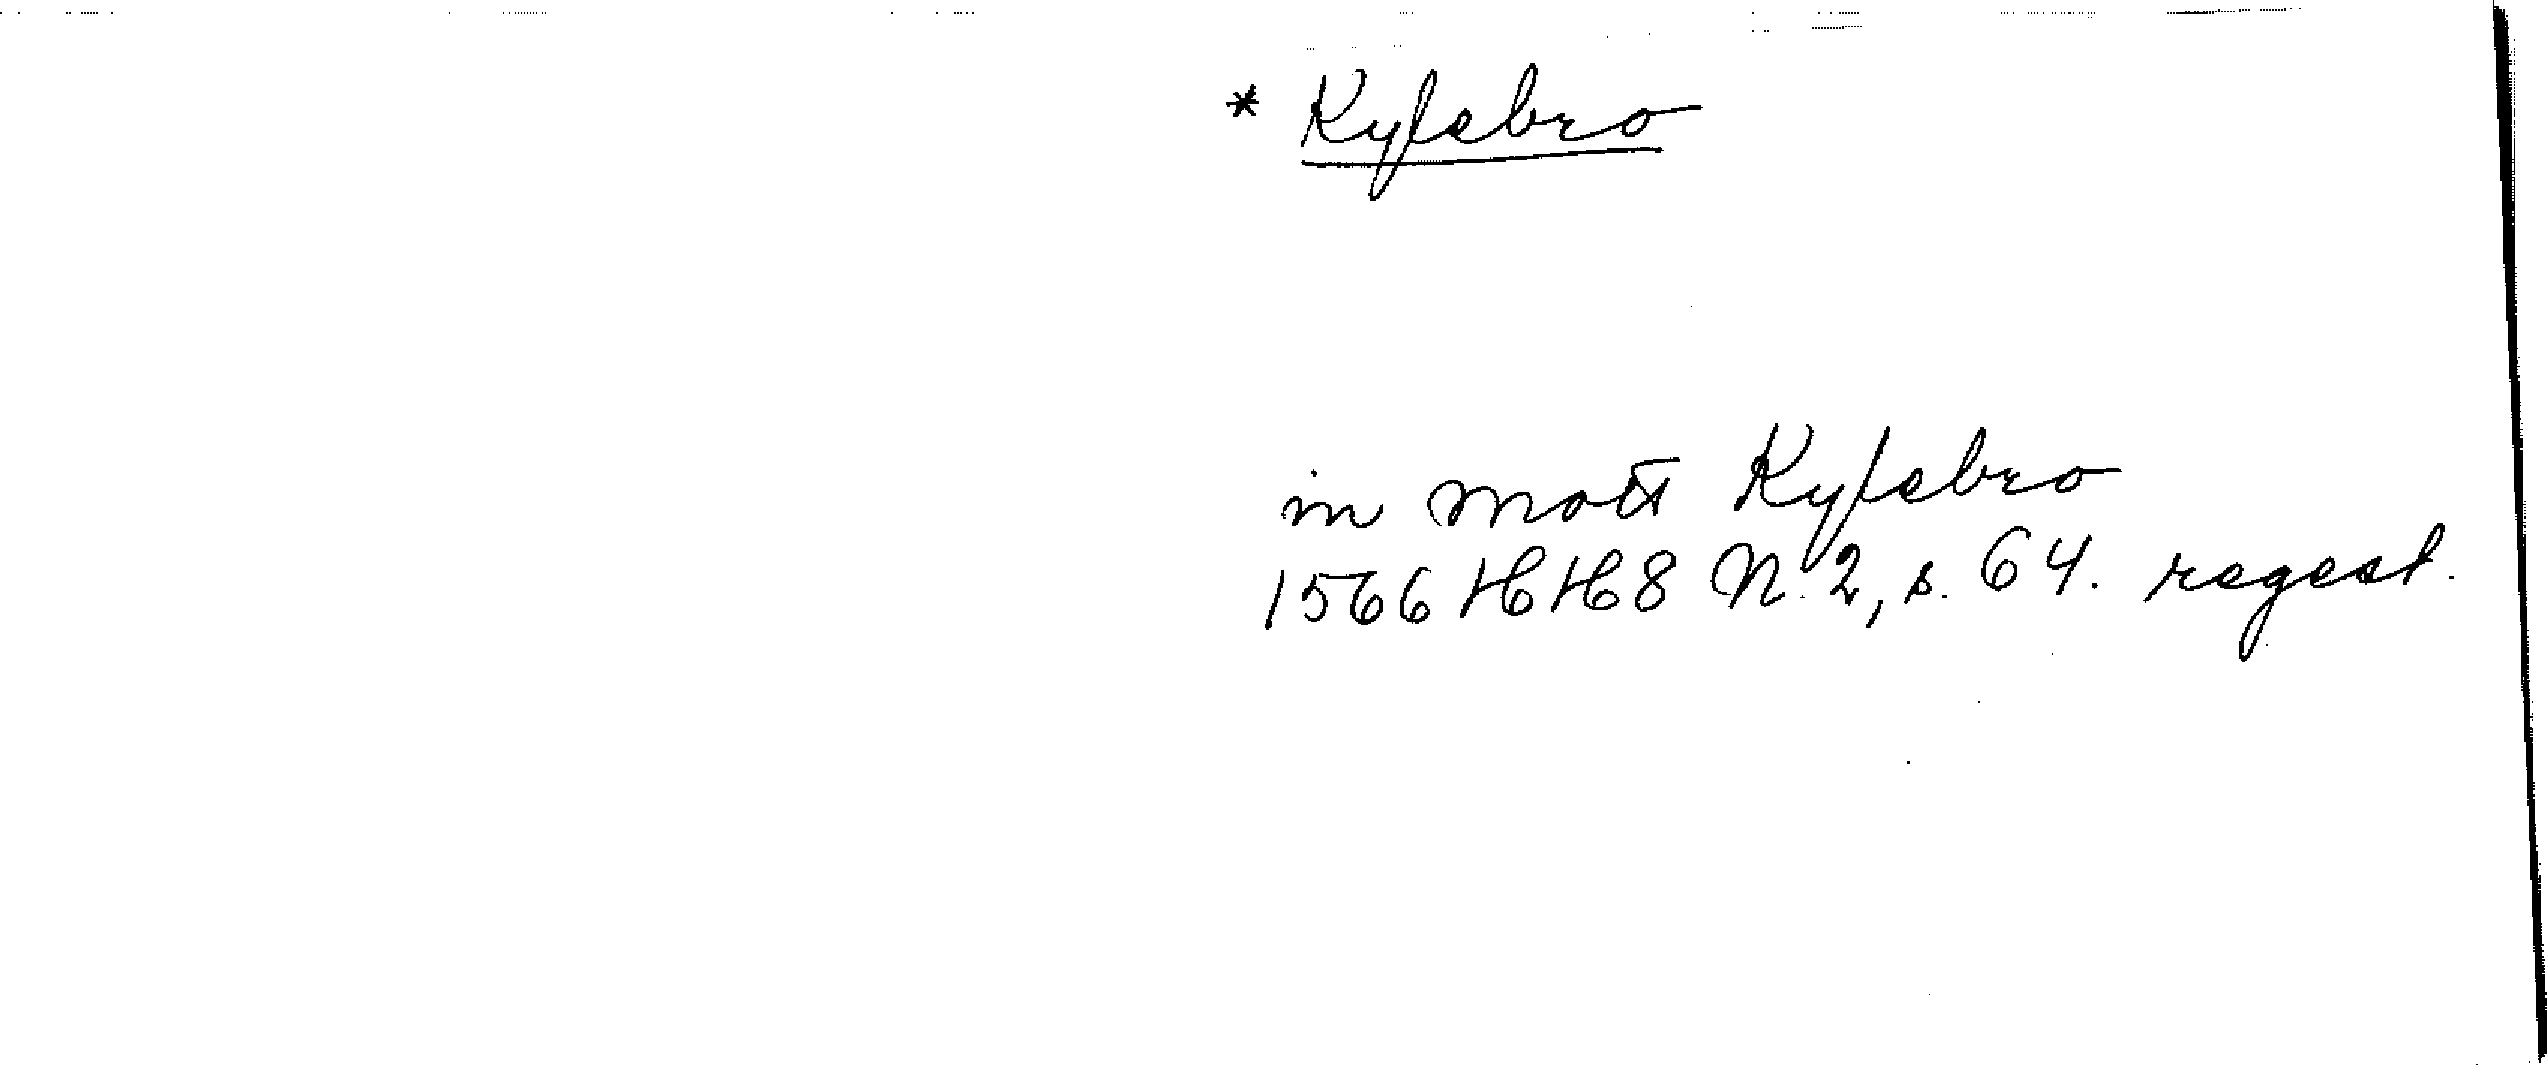 * Kylebro
in mott Kylebro
1566 HH 8 N. 2, s. 64. regest.